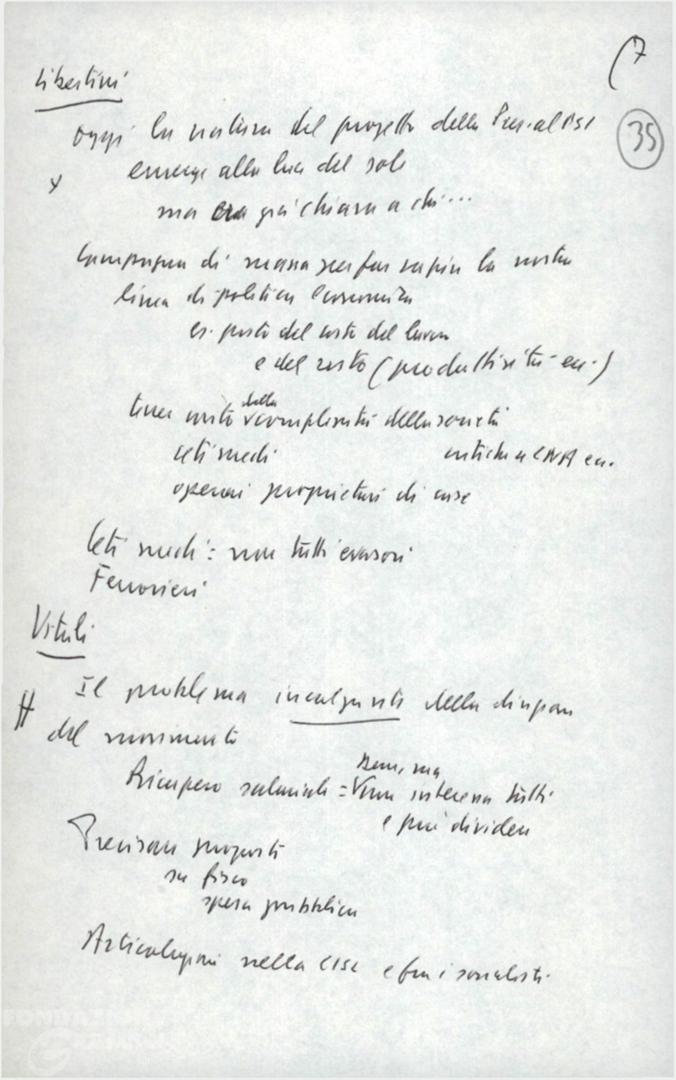 (7
35
Libertini
oggi la natura del progetto della
emerge alla luce del sole
x
ma era già chiara a chi...
Campagna di massa per far capire la nostra
linea di politica economica
es. posto del costo del lavoro
e del resto (produttività ecc.)
tener conto della complessità della società
ceti medi
CNA ecc.
operai proprietari di case
Ceti medi: non tutti evasori
Ferrovieri
Vitali
Il problema incalzante della
del movimento
Recupero salariale = bene, ma non interessa tutti
e può dividere
Precisare proposte
su fisco
spesa pubblica
Articolazioni nella CISL e fra i socialisti
FONDAZIONE
GRAMSCI